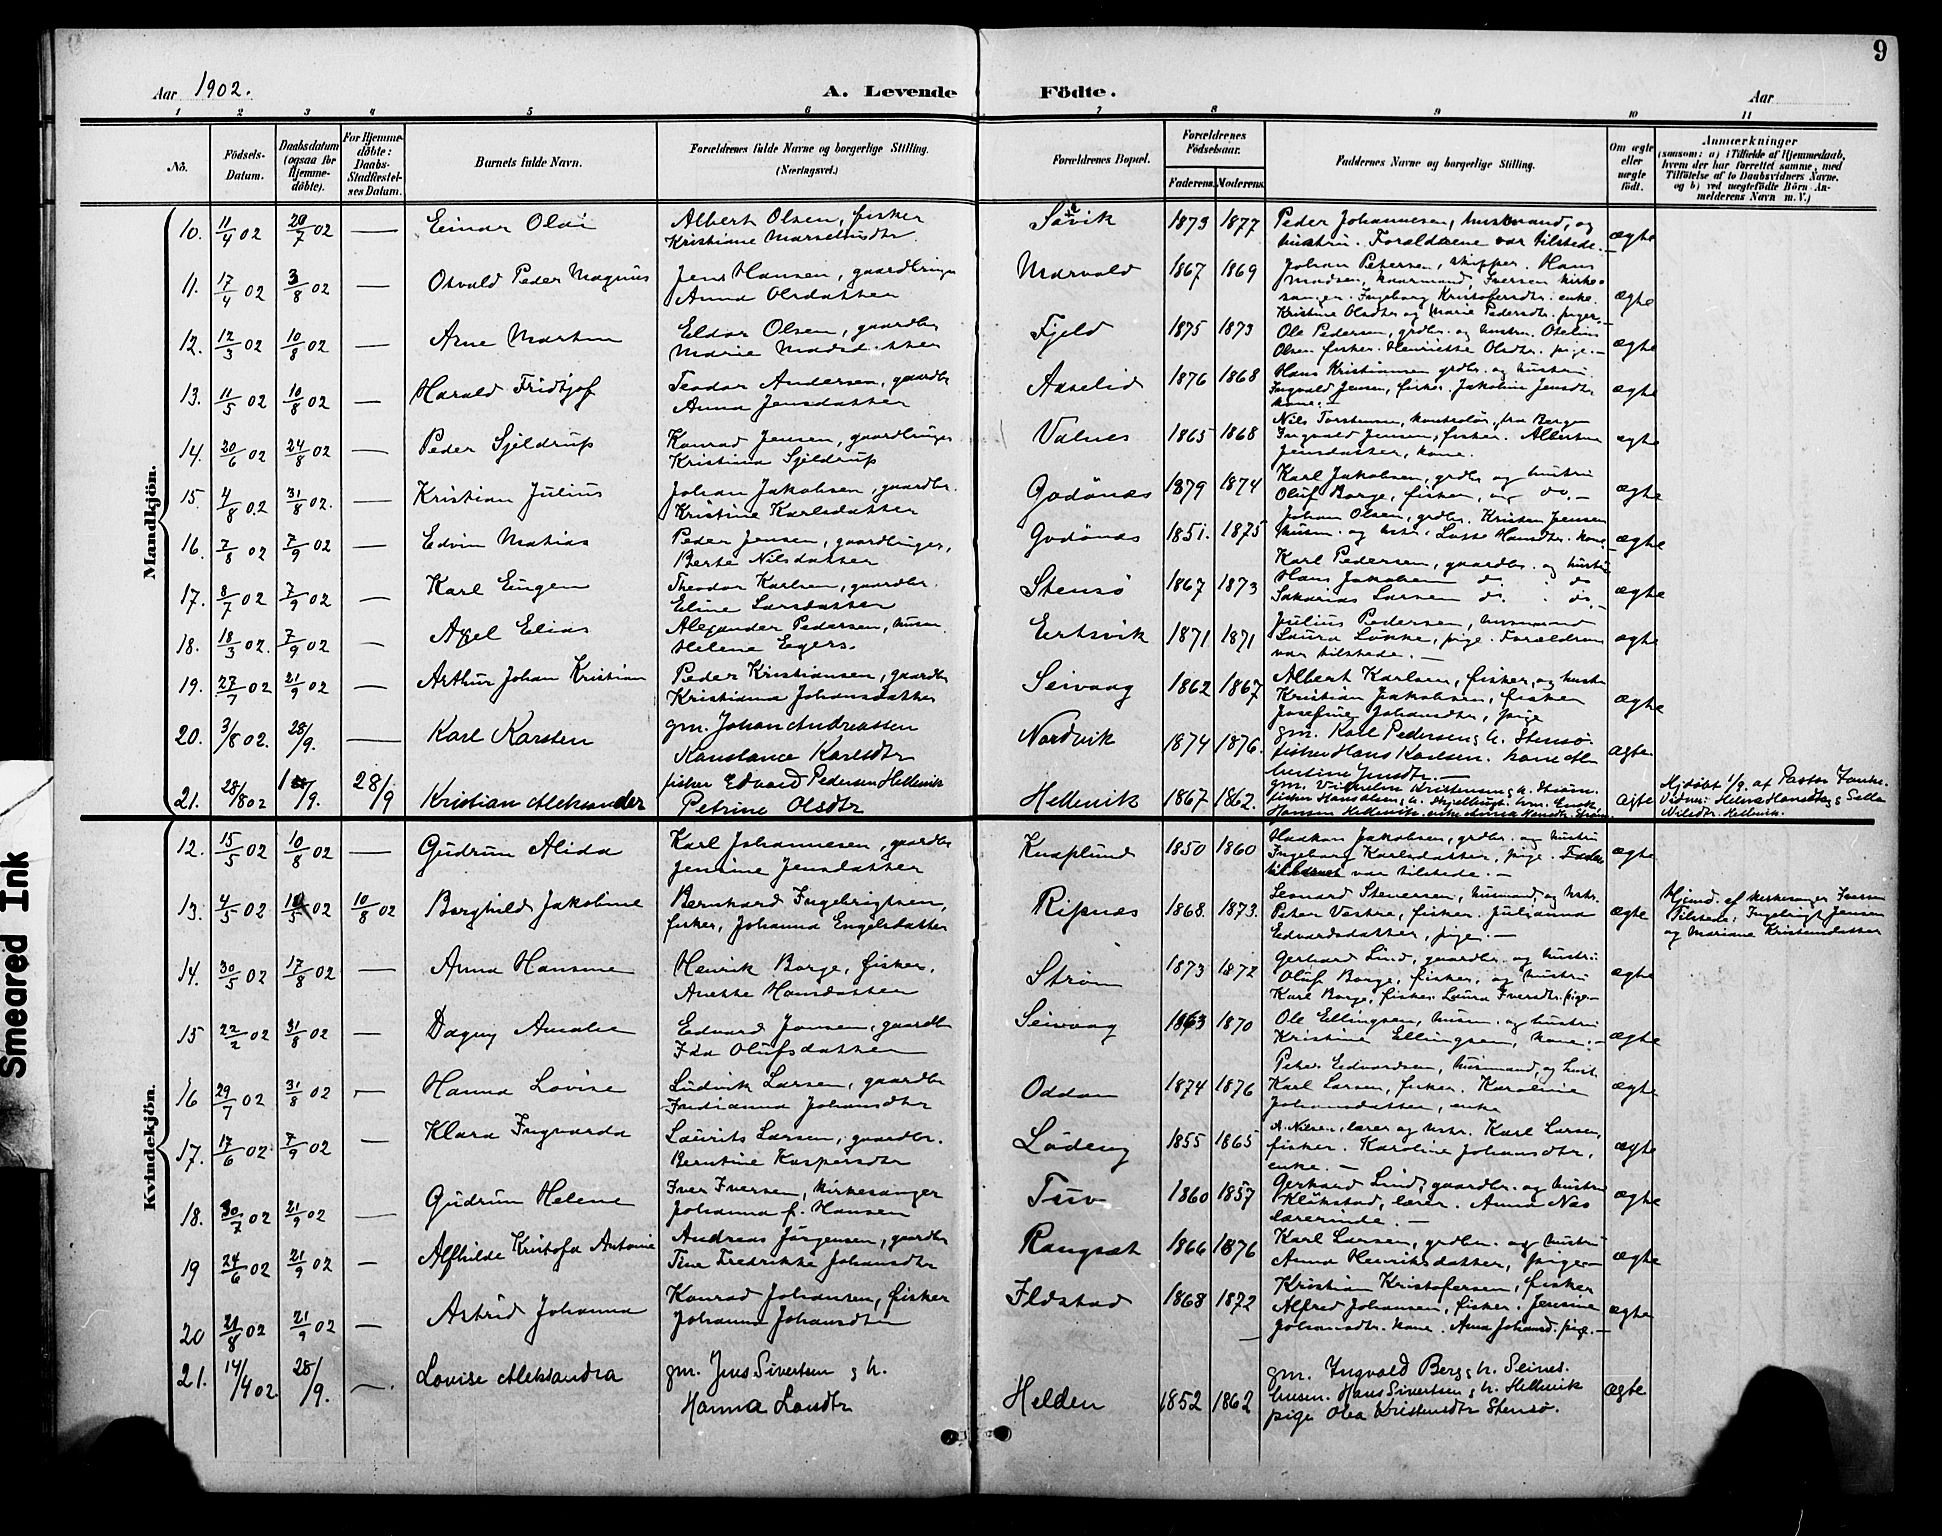 9
Aar 1902. A. Levende Födte. Aar
1 2 3 4 5 6 7 8 9 10 11
No. Födsels-Datum. Daabsdatum (ogsaa for Hjemmedöbte). For Hjemmedöbte: Daabs-Stadfæstelses Datum. Barnets fulde Navn. Forældrenes fulde Navne og borgerlige Stilling. (Næringsvei.) Forældrenes Bopæl. Forældrenes Födselsaar. Faderens. Moderens. Faddernes Navne og borgerlige Stilling. Om ægte eller uægte født. Anmærkninger (saasom: a) i Tilfælde af Hjemmedaab, hvem der har forrettet samme, med Tilföielse af to Daabsvidners Navne, og b) ved uægtefödte Börn Anmelderens Navn m. V.)
Mandkjön.
10. 11/4 02 20/7 02 — Einar Olai Albert Olsen, fisker Søvik 1873 1877 Peder Johannesen, husmand, og ægte
Kristiane hustru. Forældrene var tilstede. —
11. 17/4 02 3/8 02 — Osvald Peder Magnus Jens Hansen, gaardbruger Marvold 1867 1869 Johan Petersen, skipper. Hans ægte
Anna Olsdatter Madsen, Iversen kirke-
sanger. Ingeborg Kristofersdtr. enke.
Kristine Olsdtr og Marie Pedersdtr. piger —
12. 12/3 02 10/8 02 — Arne Martin Eldar Olsen, gaardbr Fjeld 1875 1873 Ole Pedersen, grdbr. og hustru. ægte
Marie Madsdatter Olsen fisker. Henriette Olsdtr. pige. —
13. 11/5 02 10/8 02 — Harald Fridtjof Teodor Andersen, gaardbr Aaselid 1876 1868 Hans Kristiansen grdbr. og hustru. ægte
Anna Jensdatter Ingvald Jensen, fisker. Jakobine Jensdtr
kone. —
14. 30/6 02 24/8 02 — Peder Sjeldrup Konrad Jensen, gaardbruger Valnes 1865 1868 Nils Torstensen, kontrolør, fra Bergen ægte
Kristina Sjeldrup Ingvald Jensen, fisker. Albertine
Jensdatter, kone.
15. 4/8 02 31/8 02. — Kristian Julius Johan Jakobsen, gaardbr. Godønes 1879 1874 Karl Jakobsen, grdbr og hustru ægte
Kristine Karlsdatter Oluf Borge, fisker, og do. —
16. 7/8 02 7/9 02 — Edvin Matias Peder Jensen, gaardbruger, Godønes 1851. 1875 Johan Olsen, grdbr. Kristen Jensen ægte
Berte Nilsdatter husm. og hstr. Lotte Hansdtr. kone —
17. 8/7 02 7/9 02 — Karl Eugen Theodor Karlsen, gaardbr. Stensø 1867 1873 Karl Pedersen, gaardbr. og hustru ægte
Eline Larsdatter Hans Jakobsen do. do
Sakarias Larsen do. do. —
18. 18/3 02. 7/9 02 — Axel Elias Alexander Pedersen, husm. Eertsvik 1871 1871 Julius Pedersen, husmand ægte
Helene Egers. Laura Løkke, pige. Forældrene
var tilstede. —
19. 27/7 02 21/9 02 — Arthur Johan Kristian Peder Kristiansen, gaardbr Seivaag 1862 1867 Albert Karlsen, fisker, og hustr ægte
Kristianna Johansdatter Kristian Jakobsen, fisker
Josefine Johansdtr, pige
20. 3/8 02. 28/9. — Karl Karsten gm. Johan Andreassen Nordvik 1874 1876. gm. Karl Pedersen & h. Stensø. ægte
Konstance Karlsdtr fisker Hans Karlsen. kone
Jensdtr. —
21. 28/8 02 1/9. 28/9 Kristian Aleksander fisker Edvard Pedersen Hellevik Hellevik 1867 1862. gm. Vilhelm Kristensen & h. Strøm. ægte Hjdøbt 1/9. af Pastor
Petrine Olsdtr fisker Hans Olsen & h.
Hansen Hellevik. Nilsdtr. Hellevik.
Kvindekjön.
12. 15/5 02 10/8 02 — Gudrun Alida Karl Johannesen, gaardbr Knaplund 1850 1860 Haakon Jakobsen, grdbr. og hustru ægte
Jensine Jensdatter Ingeborg Karlsdatter, pige. Fader
var tilstede. —
13. 4/5 02 10/5 02 10/8 02 Borghild Jakobine Bernhard Ingebrigtsen, Ripnes 1868. 1873. Leonard Stenersen, husmand, og hstr. ægte Hjemd. af kirkesanger Iversen
fisker, Johanna Engelsdatter Peter Vastre, fisker. Julianna Tilstede: Ingebrigt Jensen
Edvardsdatter, pige. — og Mariane Kristensdatter
14. 30/5 02 17/8 02 — Anna Hansine Henrik Borge, fisker. Strøm 1873 1872 Gerhard Lind, gaardbr. og hustru ægte
Anette Hansdatter Oluf Borge, fisker, og hustru
Karl Borge, fisker. Laura Iversdtr. pige —
15 22/2 02 31/8 02 — Dagny Amalie Edvard Jansen, gaardbr Seivaag 1863 1870 Ole Ellingsen, husm. og hustru ægte
Ida Olufsdatter Kristine Ellingsen, kone. —
16 29/7 02 31/8 02 — Hanna Lovise Ludvik Larsen, gaardbr Oddan 1874 1876 Peter Edvardsen, husmand, og hust. ægte
Indianna Johansdtr Karl Larsen, fisker. Karoline
Johannsdatter, enke
17. 17/6 02 7/9 02 — Klara Ingvarda Laurits Larsen, gaardbr. Lødeng 1855 1865 A. Nilsen, lærer og hstr. Karl Larsen, ægte
Berntine Kaspersdtr fisker. Karoline Johansdtr,
enke. —
18. 30/7 02 21/9 02 — Gudrun Helene Iver Iversen, kirkesanger Tuv 1860 1857 Gerhard Lind, gaardbr. og hustru ægte
Johanna f. Hansen Klukstad, lærer. Anna Næs
lærerinde. —
19 24/6 02 21/9 02 — Alfhilde Kristofa Antonie Andreas Jørgensen, gaardbr Rangsæt 1866 1876 Karl Larsen, grdbr. og hustru ægte
Tine Fredrikke Johansdtr Anna Henriksdatter, pige —
20 21/8 02 21/9 02 — Astrid Johanna Konrad Johansen, fisker Ildstad 1868 1872 Kristian Kristofersen, fisker ægte
Johanna Johansdtr Alfred Johansen, fisker. Jensine
Johansdtr. kone. Anna Johansd. pige. —
21. 14/4 02. 28/9. — Lovise Aleksandra gm. Jens Sivertsen & h. Helden 1852 1862 gm. Ingvald Berg & h. Seines. ægte
Hanna husm. Hans Sivertsen & h. Hellevik
pige Olea Kristensdtr Stensø.
Smeared Ink